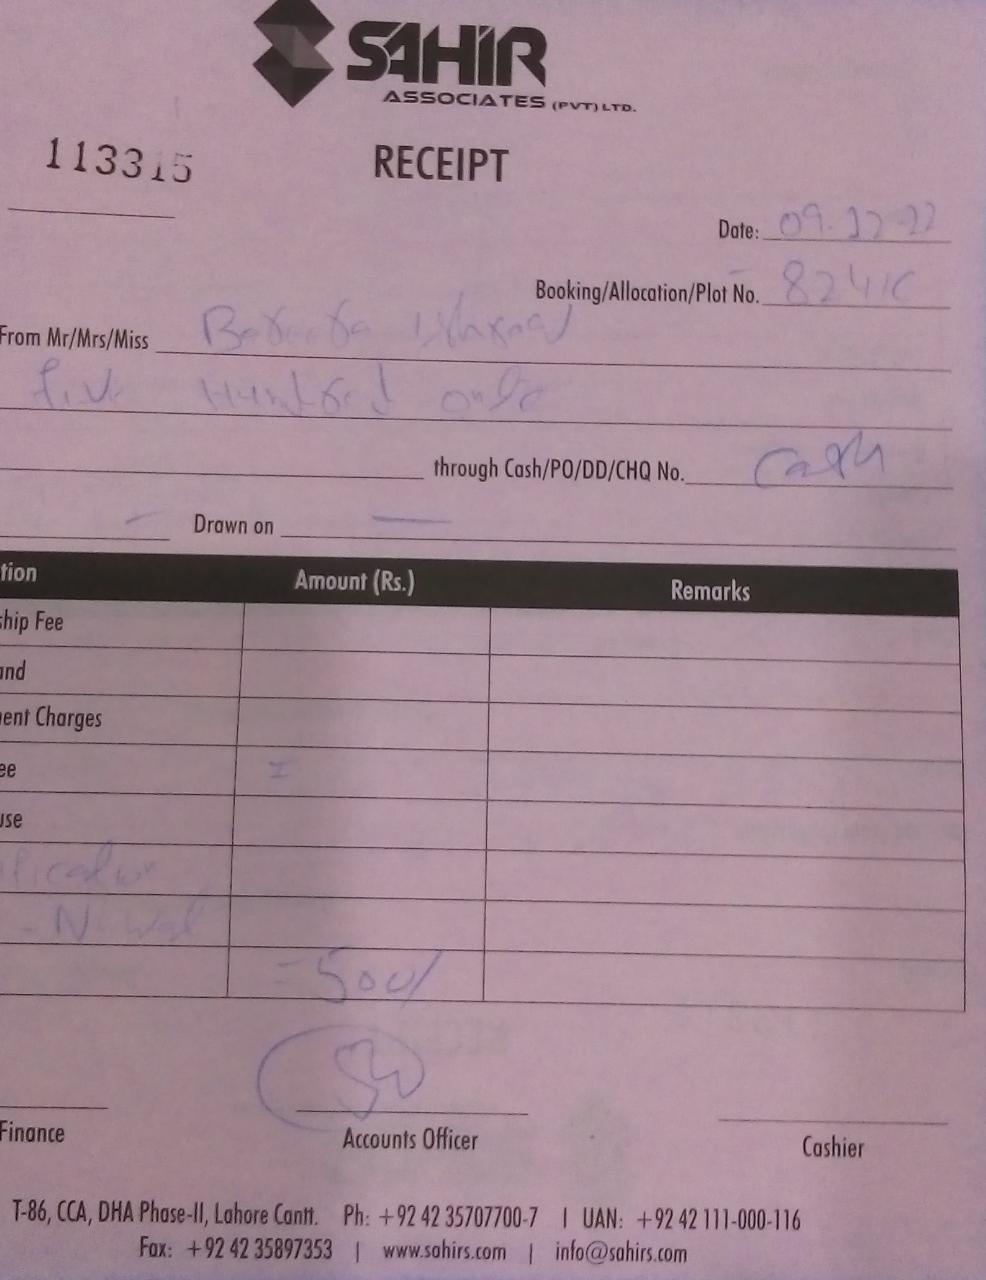 SAHIR
ASSOCIATES (PVT) LTD.
113315
RECEIPT
Date: 09.12.22
Booking/Allocation/Plot No.
From Mr/Mrs/Miss
five Hundred only
through Cash/PO/DD/CHQ No. Cash
Drawn on
tion Amount (Rs.) Remarks
ship Fee
and
ent Charges
ee
use
-500/
Finance Accounts Officer Cashier
T-86, CCA, DHA Phase-II, Lahore Cantt. Ph: +92 42 35707700-7 | UAN: +92 42 111-000-116
Fax: +92 42 35897353 | www.sahirs.com | info@sahirs.com